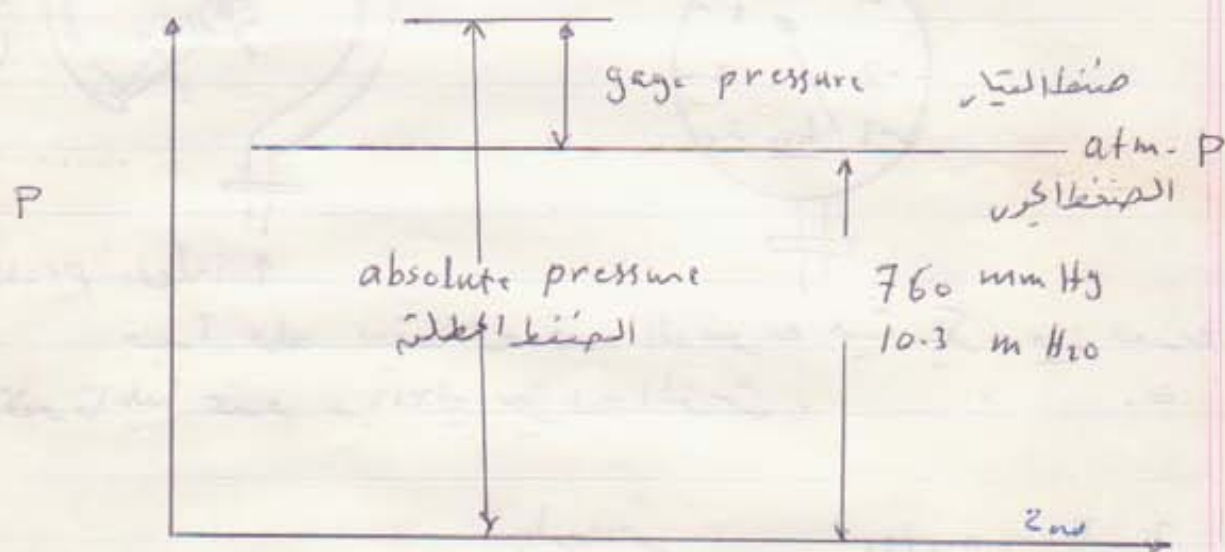 gage pressure ضغط التيار
atm. P
P الضغط الجوي
absolute pressure
الضغط المطلق
760 mm Hg
10.3 m H₂O